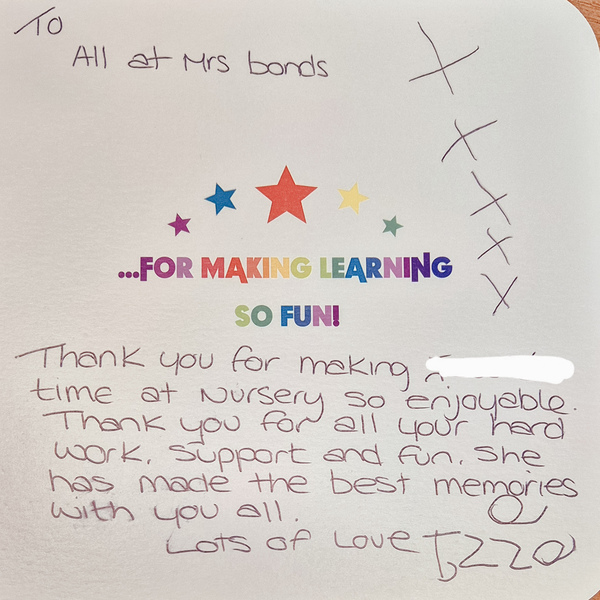 To
All at Mrs bonds
X
X
X
X
X
...FOR MAKING LEARNING
SO FUN!
Thank you for making
time at Nursery so enjoyable.
Thank you for all your hard
work, support and fun. She
has made the best memories
with you all.
Lots of Love